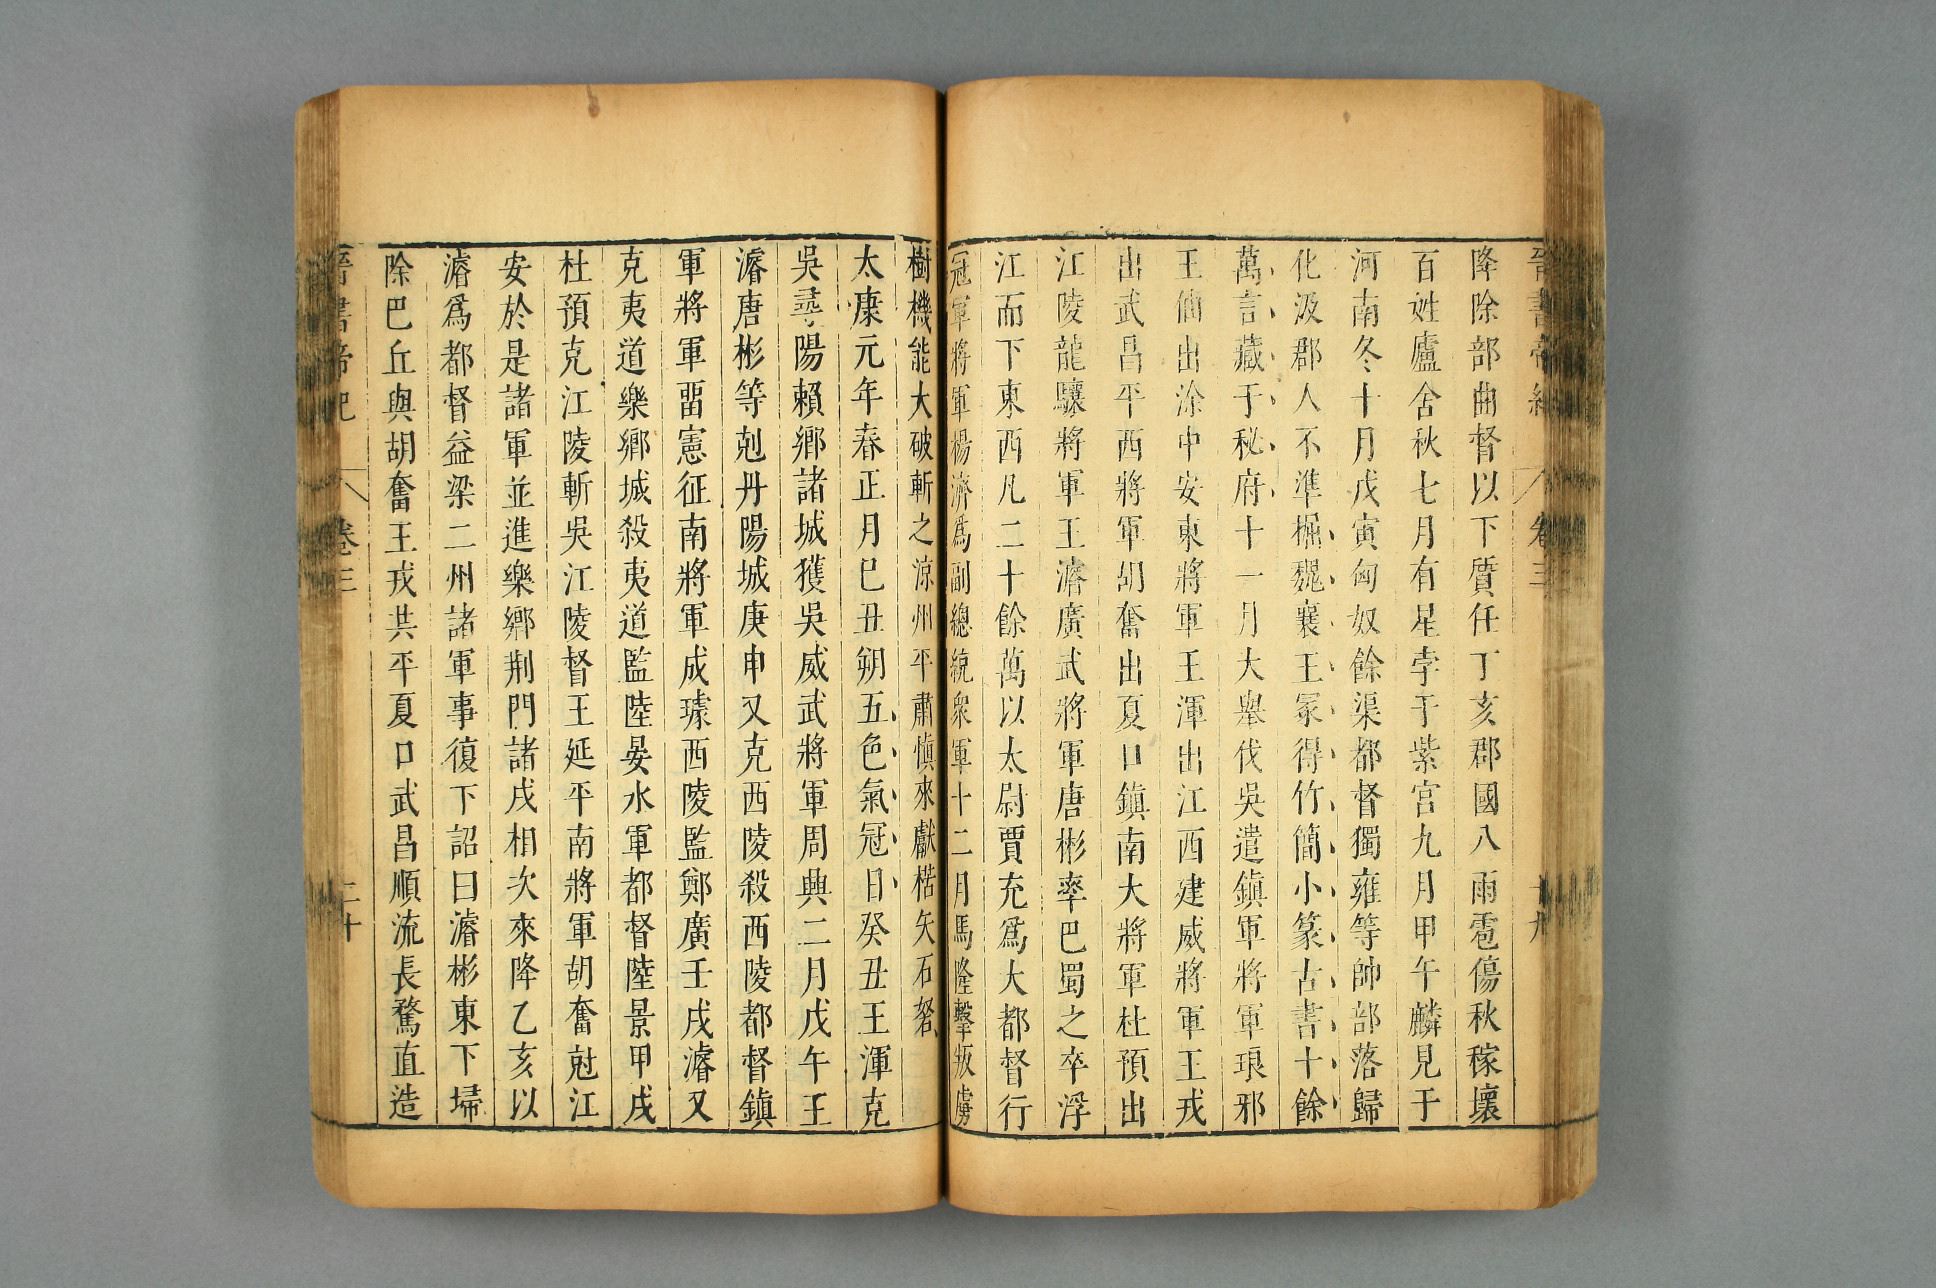 晉書帝紀 卷三 十九
降除部曲督以下質任丁亥郡國八雨雹傷秋稼壞
百姓廬舍秋七月有星孛于紫宮九月甲午麟見于
河南冬十月戊寅匈奴餘渠都督獨雍等帥部落歸
化汲郡人不準掘魏襄王冢得竹簡小篆古書十餘
萬言藏于秘府十一月大舉伐吳遣鎮軍將軍琅邪
王伷出涂中安東將軍王渾出江西建威將軍王戎
出武昌平西將軍胡奮出夏口鎮南大將軍杜預出
江陵龍驤將軍王濬廣武將軍唐彬率巴蜀之卒浮
江而下東西凡二十餘萬以太尉賈充爲大都督行
冠軍將軍楊濟爲副總統衆軍十二月馬隆擊叛虜
樹機能大破斬之涼州平肅慎來獻楛矢石砮
太康元年春正月己丑朔五色氣冠日癸丑王渾克
吳尋陽賴鄉諸城獲吳威武將軍周興二月戊午王
濬唐彬等剋丹陽城庚申又克西陵殺西陵都督鎮
軍將軍畱憲征南將軍成璩西陵監鄭廣壬戌濬又
克夷道樂鄉城殺夷道監陸晏水軍都督陸景甲戌
杜預克江陵斬吳江陵督王延平南將軍胡奮剋江
安於是諸軍並進樂鄉荆門諸戍相次來降乙亥以
濬爲都督益梁二州諸軍事復下詔曰濬彬東下埽
除巴丘與胡奮王戎共平夏口武昌順流長騖直造
晉書帝紀 卷三 二十